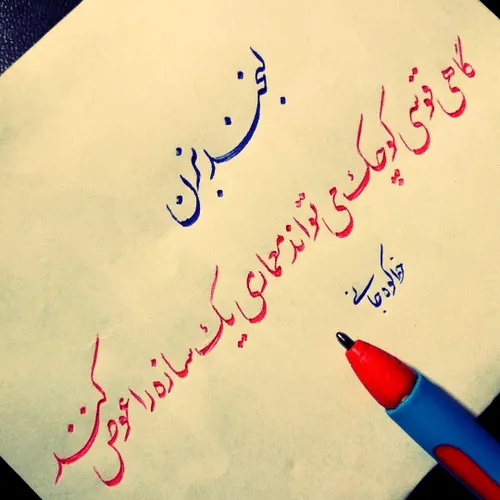 لبخند بزن
گاهی قوسی کوچک می تواند معماری یک سازه را عوض کند